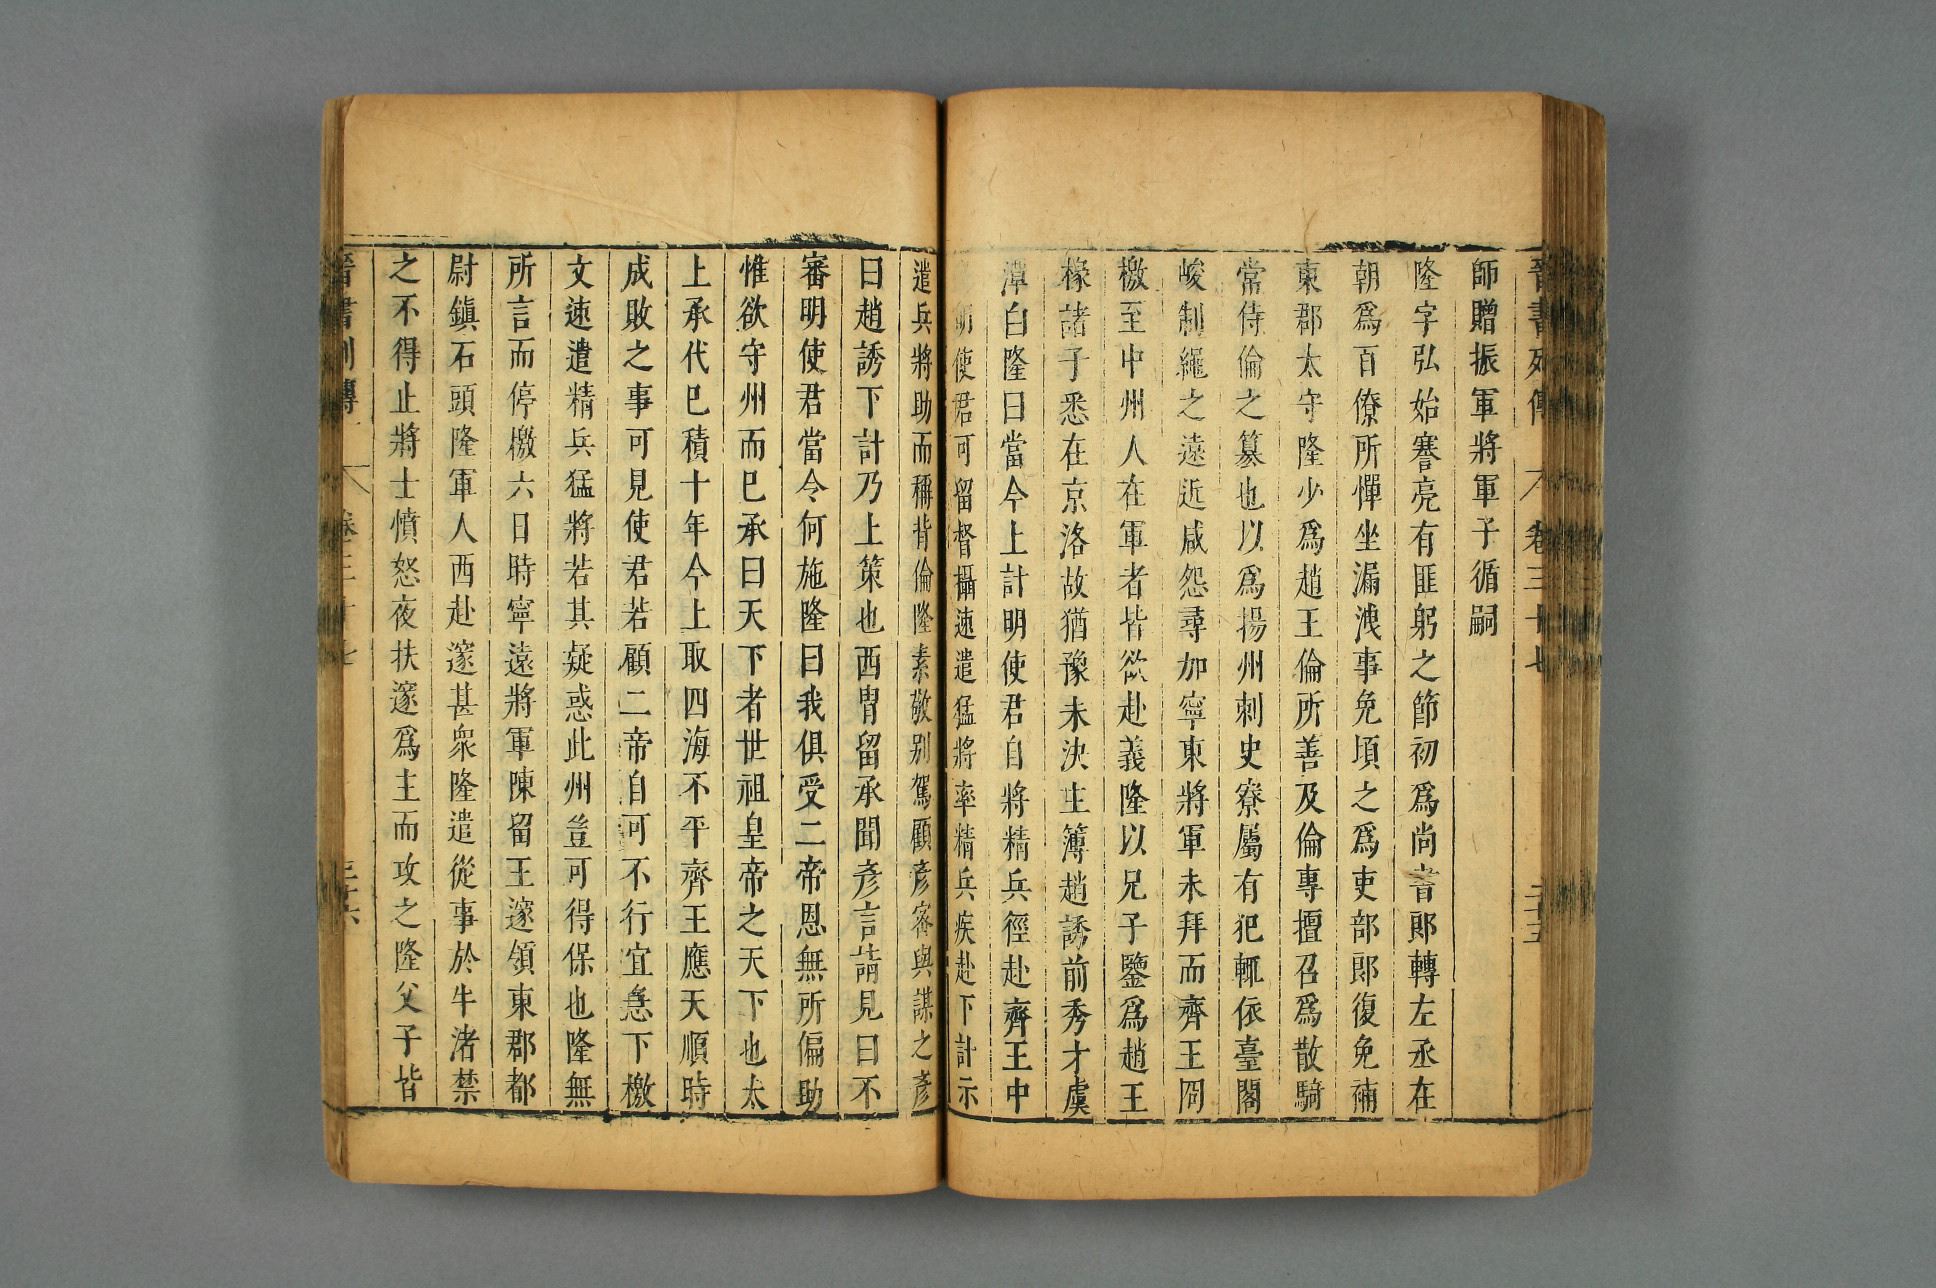 晉書列傳 卷三十七 二十五
師贈振軍將軍子循嗣
隆字弘始謇亮有匪躬之節初爲尚書郞轉左丞在
朝爲百僚所憚坐漏洩事免頃之爲吏部郎復免補
東郡太守隆少爲趙王倫所善及倫專擅召爲散騎
常侍倫之篡也以爲揚州刺史寮屬有犯輒依臺閣
峻制繩之遠近咸怨尋加寧東將軍未拜而齊王冏
檄至中州人在軍者皆欲赴義隆以兄子鑒爲趙王
椽諸子悉在京洛故猶豫未決主簿趙誘前秀才虞
潭白隆曰當今上計明使君自將精兵徑赴齊王中
明使君可留督攝速遣猛將率精兵疾赴下計示
遣兵將助而稱背倫隆素敬别駕顧彦密與謀之彦
曰趙誘下計乃上策也西曹留承聞彦言請見曰不
審明使君當令何施隆曰我俱受二帝恩無所偏助
惟欲守州而已承曰天下者世祖皇帝之天下也太
上承代已積十年今上取四海不平齊王應天順時
成敗之事可見使君若顧二帝自可不行宜急下檄
文速遣精兵猛將若其疑惑此州豈可得保也隆無
所言而停檄六日時寧遠將軍陳留王邃領東郡都
尉鎮石頭隆軍人西赴邃甚衆隆遣從事於牛渚禁
之不得止將士憤怒夜扶邃爲主而攻之隆父子皆
晉書列傳 卷三十七 二十六